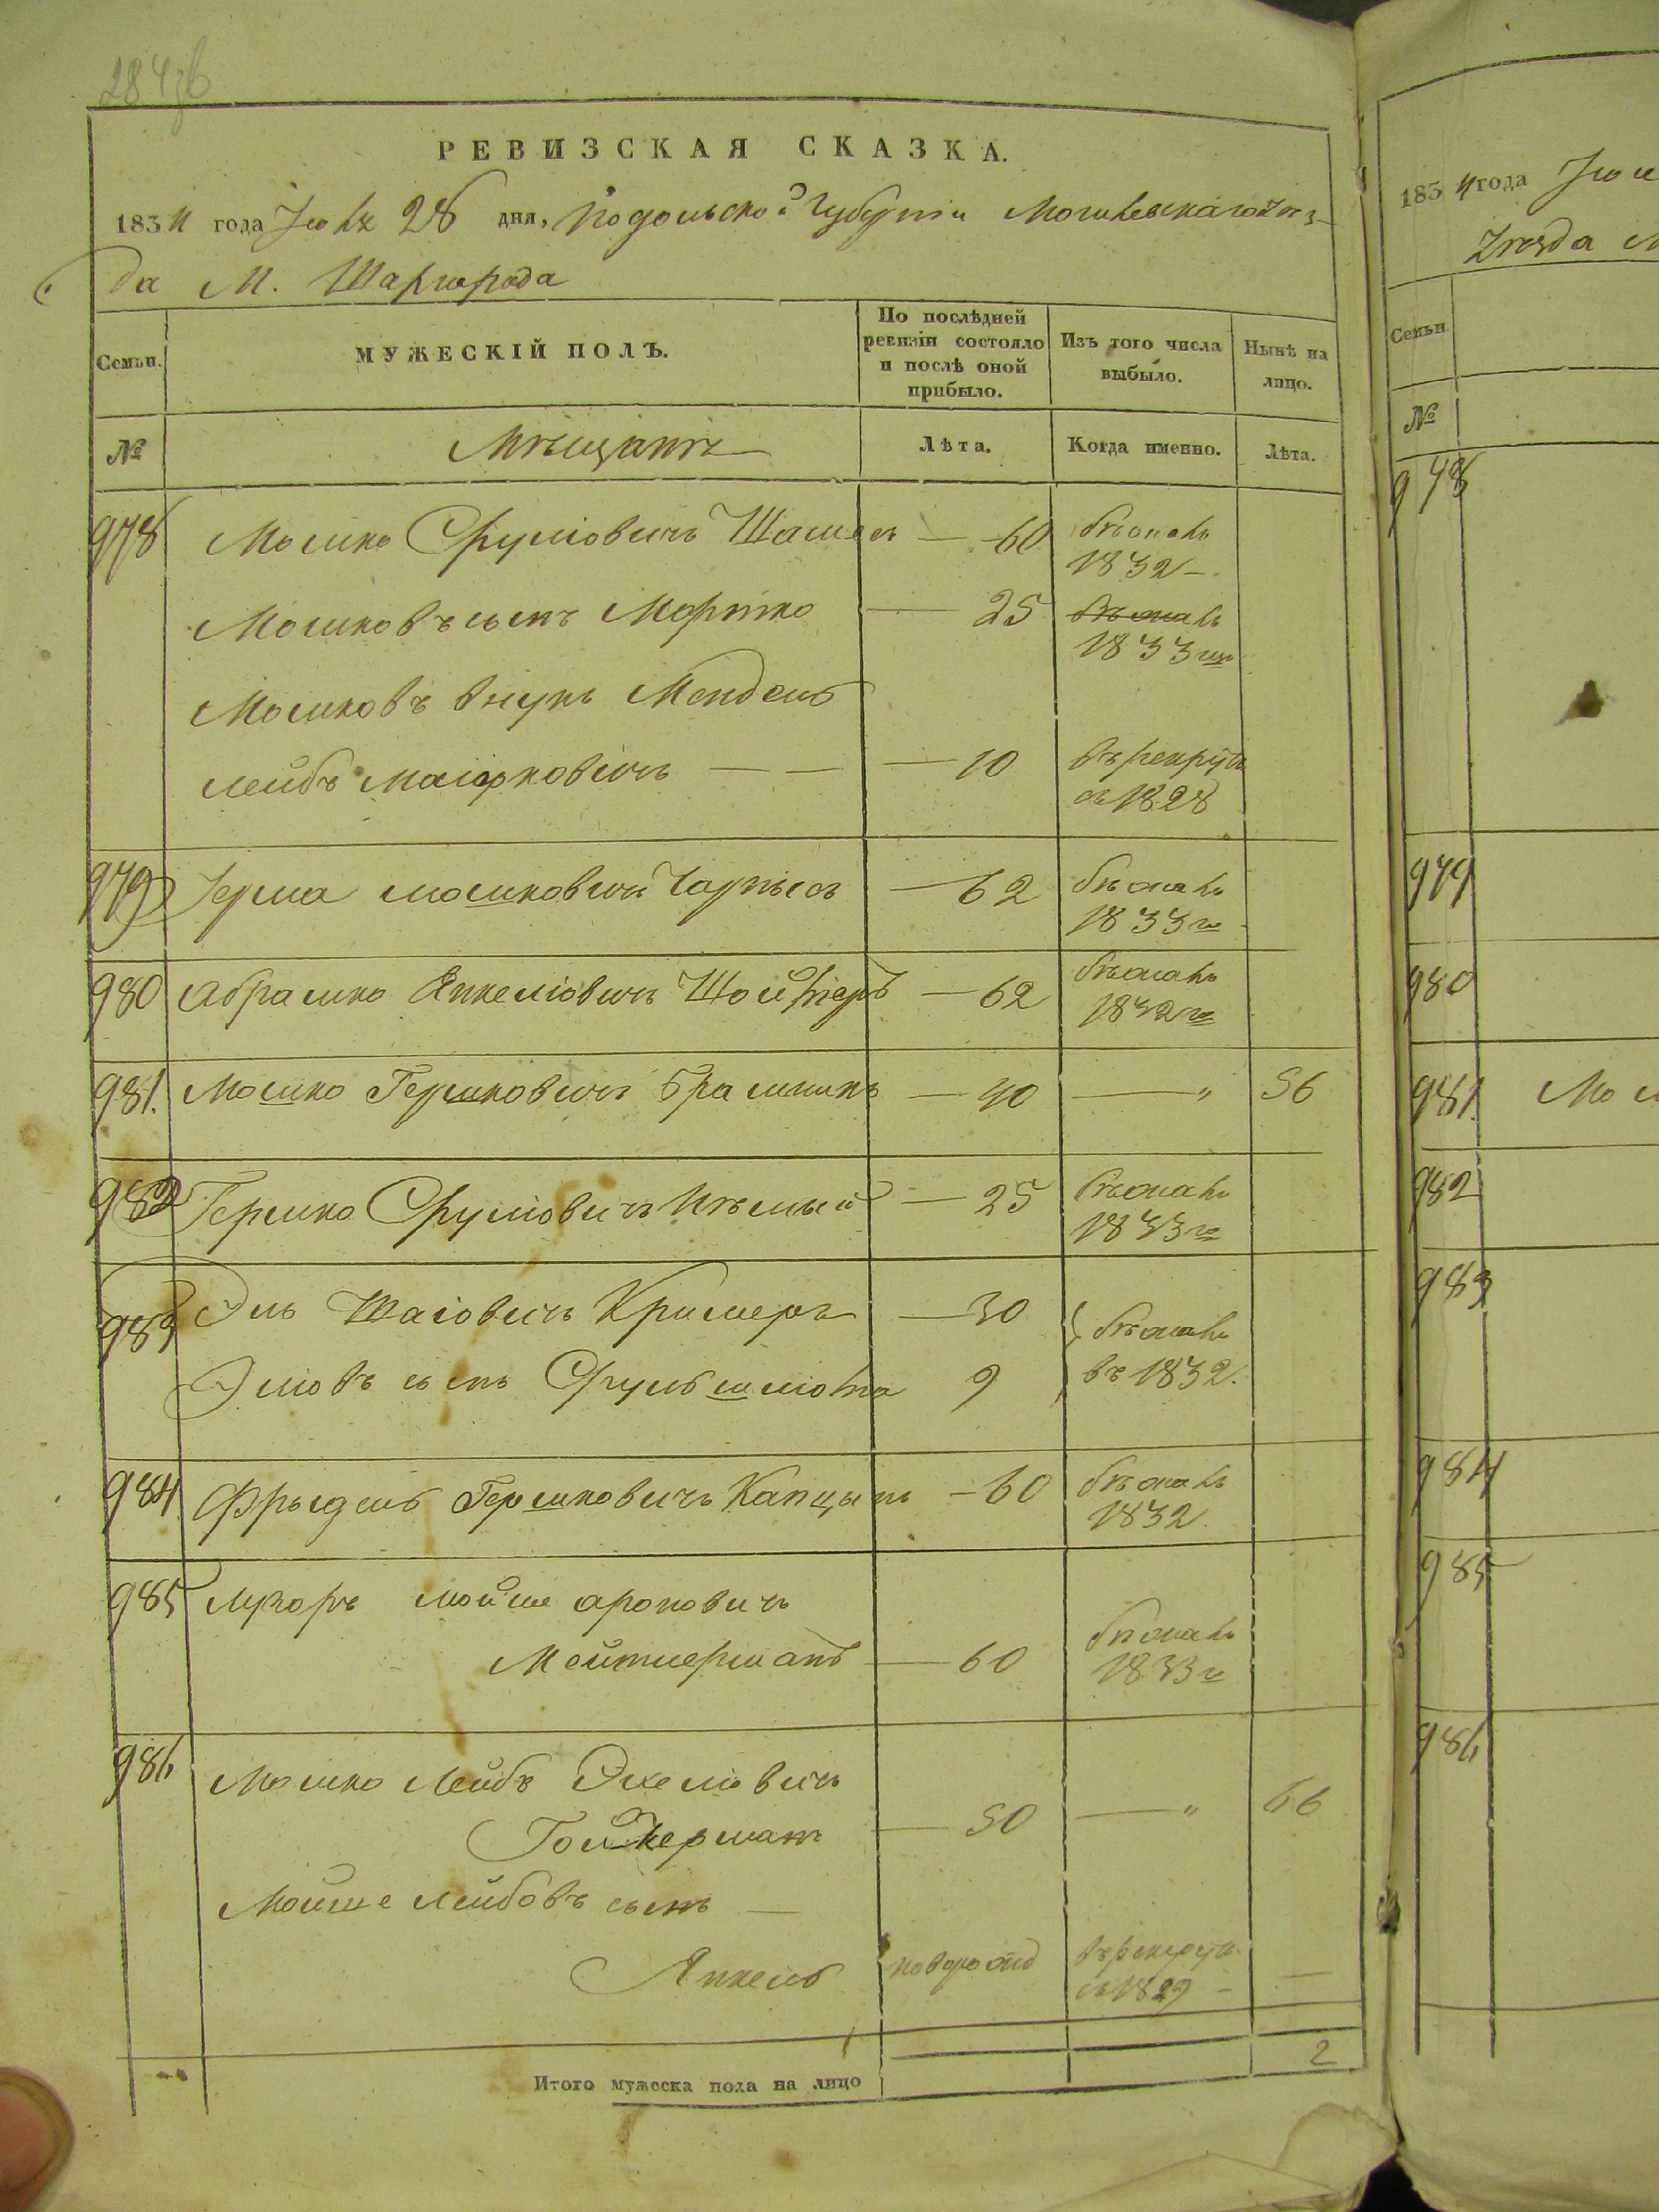 РЕВИЗСКАЯ СКАЗКА.
1834 года 28 дня, Подольской Губерніи Могилевскаго Уѣз-
да М. Шаргорода
Семьи.
МУЖЕСКІЙ ПОЛЪ.
По послѣдней ревизіи состояло и послѣ оной прибыло.
Изъ того числа выбыло.
Нынѣ на лицо.
№
Мѣщанъ
Лѣта.
Когда именно.
Лѣта.
978 Мошко Сруліовичъ — 60 бѣжалъ
1832 —
Мошковъ сынъ Мортко — 25 бѣжалъ
1833го
Мошковъ внукъ Мендель
Лейбъ — — — 10 въ рекруты
съ 1828
979 Мошковичъ — 62 бѣжалъ
1833го
980 Абрашко Янкеліовичъ — 62 бѣжалъ
1832го
981. Мошко Гершковичъ — 40 — „ 56
982 Гершко Сруліовичъ Нѣмый — 25 бѣжалъ
1833го
983 Эль Шаіовичъ Кримеръ — 30 бѣжалъ
Эліовъ сынъ Сруль 9 въ 1832.
984 Фрыдель Гершковичъ Капцынъ — 60 бѣжалъ
1832
985 Мойше Ароновичъ
— 60 бѣжалъ
1833го
986 Мошко Лейбъ
Гойхерманъ — 50 — „ 66
Мойше Лейбовъ сынъ —
Янкель новорожд въ рекруты
съ 1829 — —
Итого мужеска пола на лицо 2
1834 года
Уѣзда М
Семьи.
№
978
979
980
981
982
983
984
985
986